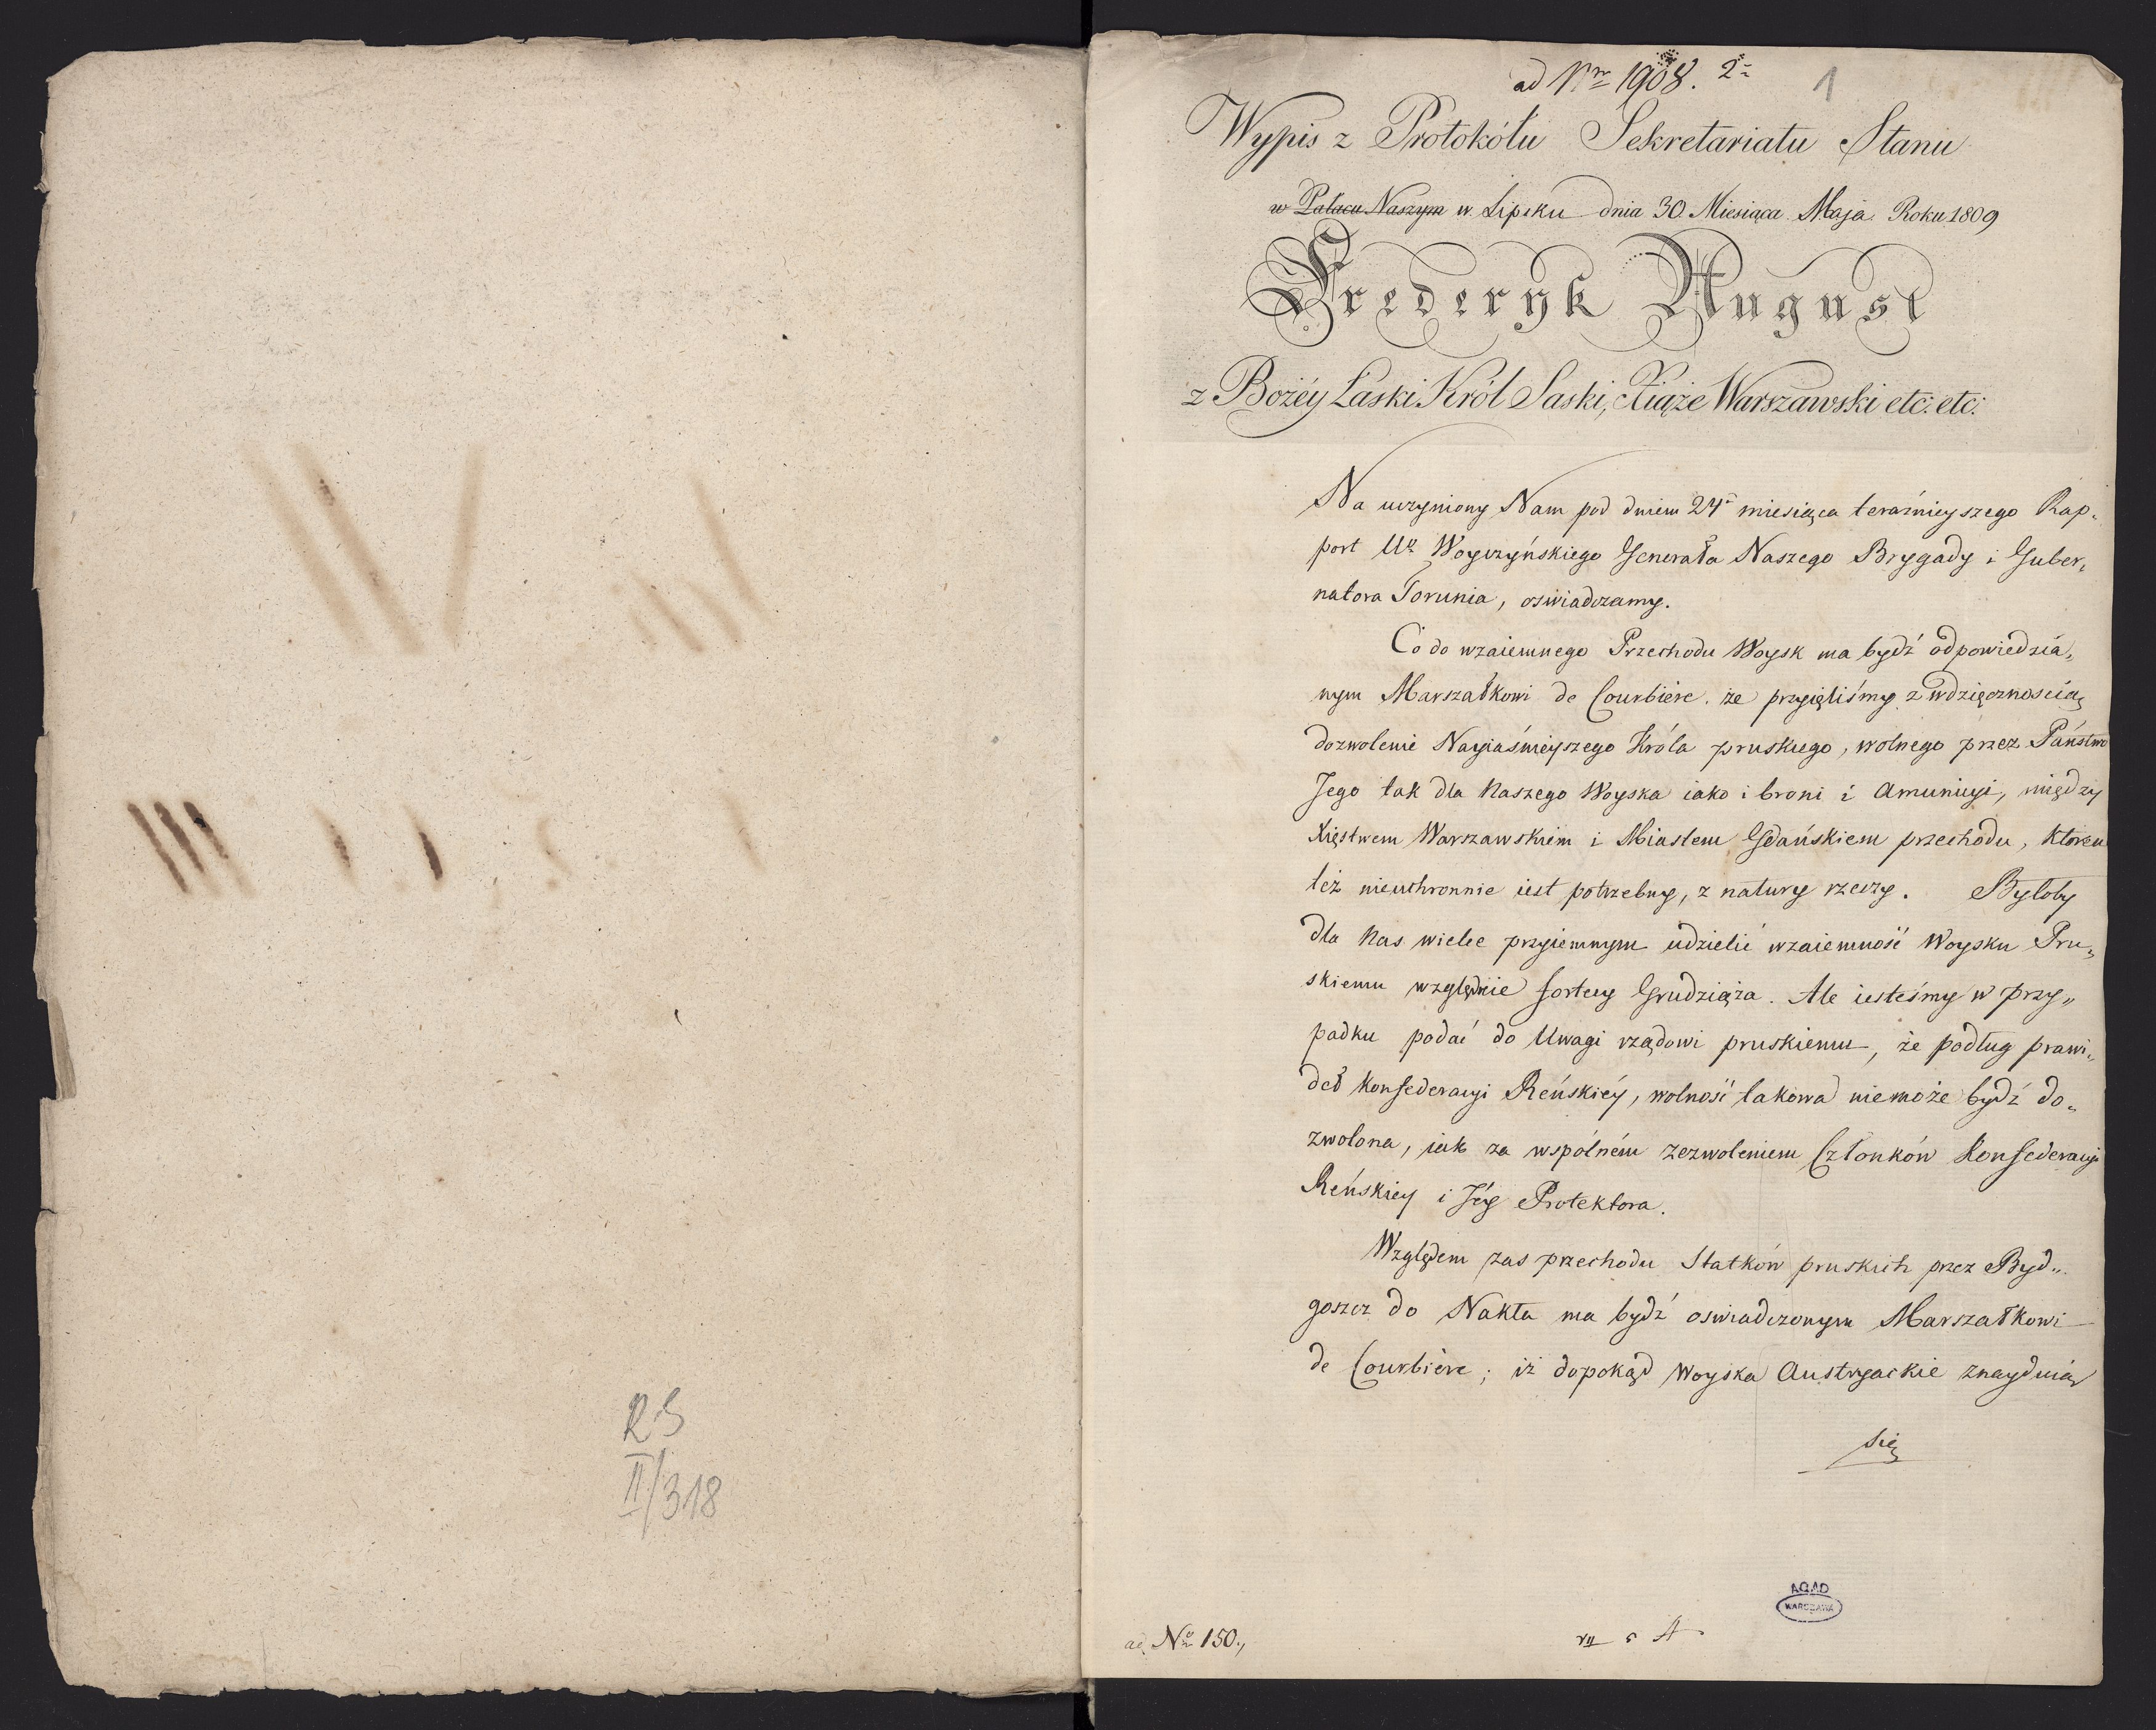 R.S
II/318
ad Nro 1908. 2
1
Wypis z Protokółu Sekretariatu Stanu
w Pałacu Naszym w Lipsku dnia 30 Miesiąca Maja Roku 1809
Frederyk August
z Bożéy Łaski Król Saski, Xiąże Warszawski etc: etc:
Na uczyniony Nam pod dniem 24 miesiąca teraźnieyszego Rap-
port Uo Woyczyńskiego Generała Naszego Brygady i Guber-
natora Torunia, oświadczamy.
Co do wzaiemnego Przechodu Woysk ma bydź odpowiedzia-
nym Marszałkowi de Courbiére. że przyięliśmy z wdzięcznością
dozwolenie Nayiaśnieyszego Króla pruskiego, wolnego przez Państwo
Jego tak dla Naszego Woyska iako i broni i Amunicyi, między
Xięstwem Warszawskiem i Miastem Gdańskiem przechodu, który
też nieuchronnie iest potrzebny, z natury rzeczy. Byłoby
dla Nas wielce przyiemnym udzielić wzaiemność Woysku Pru-
skiemu względnie fortecy Grudziąża. Ale iesteśmy w przy-
padku podać do Uwagi rządowi pruskiemu, że podług prawi-
deł Konfederacyi Reńskiéy, wolność takowa niemoże bydź do-
zwolona, iak za wspólném zezwoleniem Członków Konfederacyi
Reńskiey i Jéy Protektora.
Względem zas przechodu Statków pruskich przez Byd-
goszcz do Nakła ma bydź oswiadczonym Marszałkowi
de Courbiére; iż dopokąd Woyska Austryackie znayduią
się
AGAD
WARSZAWA
ad No 150.,